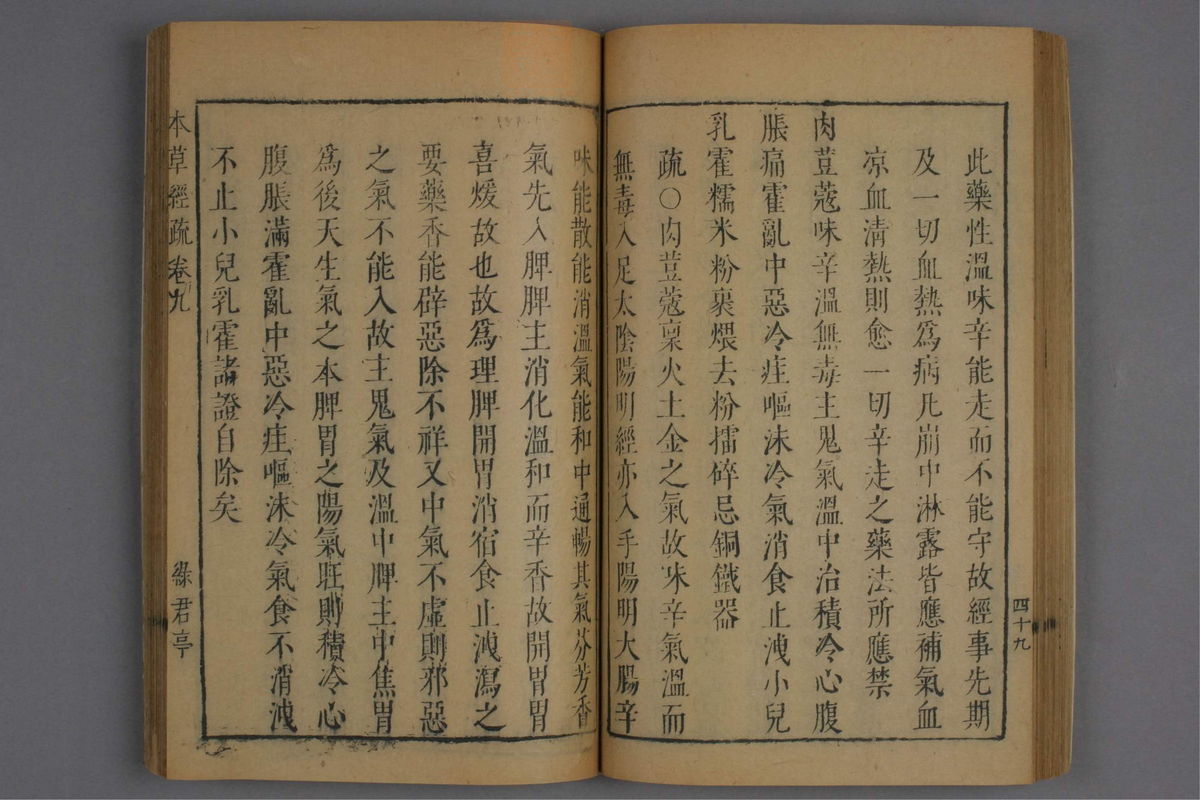 四十九
此藥性溫味辛能走而不能守故經事先期
及一切血熱爲病凡崩中淋露皆應補氣血
凉血清熱則愈一切辛走之藥法所應禁
肉荳蔻味辛溫無毒主鬼氣溫中治積冷心腹
脹痛霍亂中惡冷疰嘔沫冷氣消食止洩小兒
乳霍糯米粉裹煨去粉擂碎忌銅鐵器
疏○肉荳蔻稟火土金之氣故味辛氣溫而
無毒入足太陰陽明經亦入手陽明大腸辛
味能散能消溫氣能和中通暢其氣芬芳香
氣先入脾脾主消化溫和而辛香故開胃胃
喜煖故也故爲理脾開胃消宿食止洩瀉之
要藥香能辟惡除不祥又中氣不虛則邪惡
之氣不能入故主鬼氣及溫中脾主中焦胃
爲後天生氣之本脾胃之陽氣旺則積冷心
腹脹滿霍亂中惡冷疰嘔沫冷氣食不消洩
不止小兒乳霍諸證自除矣
本草經疏卷九
綠君亭